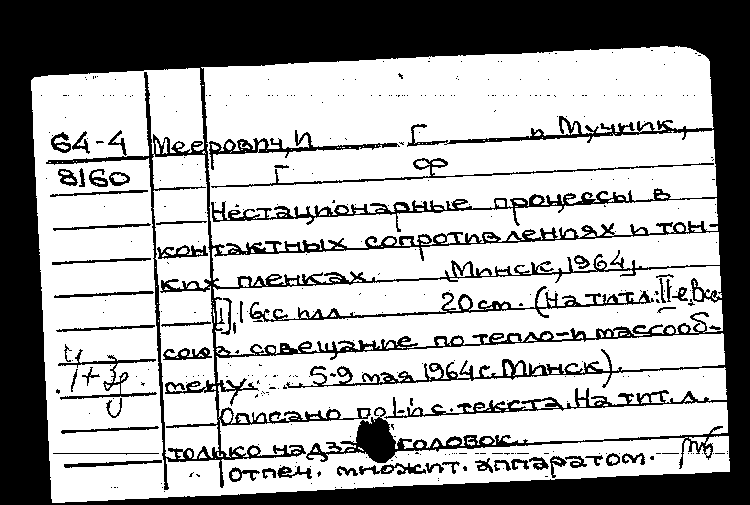 64-4 Меерович, И Г и Мучник,
8160 Г Ф
Нестационарные процессы в
контактных сопротивлениях и тон-
ких пленках. [Минск, 1964].
[1], 16 с с илл. 20 см. (На тит. л.: II-е Все-
союз. совещание по тепло- и массооб-
мену. 5-9 мая 1964 г. Минск).
Описано по 1-й с. текста. На тит. л.
только надзаголовок.
Отпеч. множит. аппаратом.